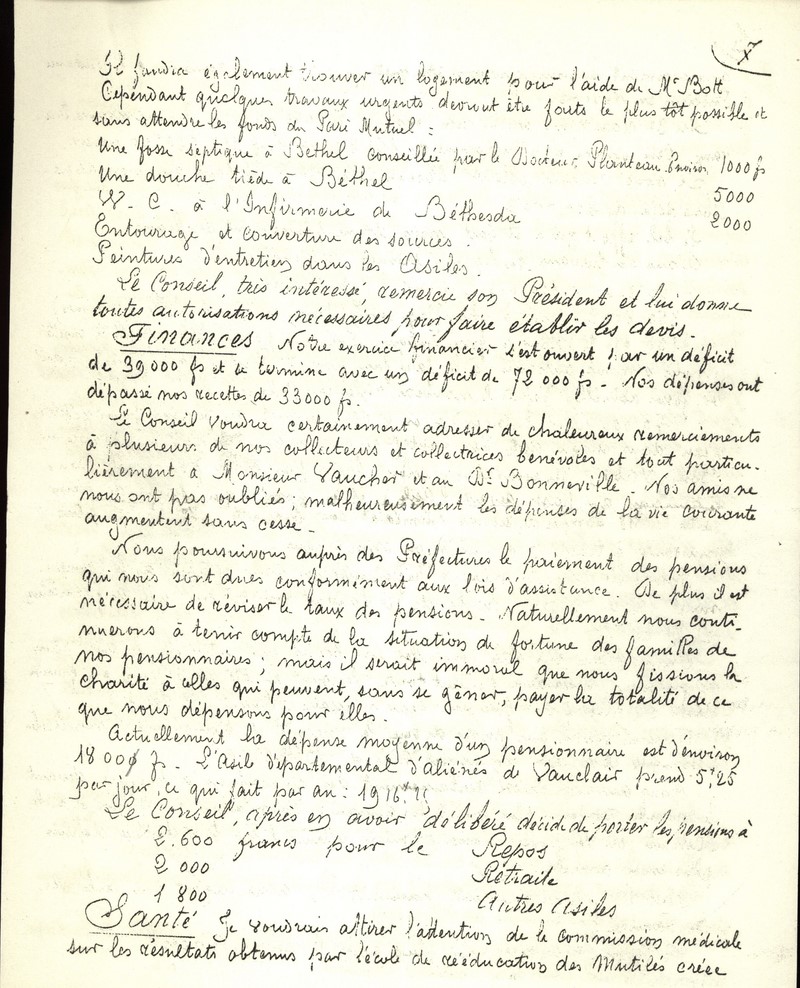 7
Il faudra également trouver un logement pour l'aide de Mr Bott
Cependant quelques travaux urgents devront être faits le plus tôt possible et
sans attendre les fonds du Pari Mutuel :
Une fosse septique à Béthel conseillée par le Docteur Planteau. Environ 1000 fs
Une douche tiède à Béthel 5000
W. C. à l'Infirmerie de Béthesda 2000
Entourage et couverture des sources.
Peintures d'entretien dans les Asiles.
Le Conseil, très intéressé, remercie son Président et lui donne
toutes autorisations nécessaires pour faire établir les devis.
Finances Notre exercice financier s'est ouvert par un déficit
de 39000 fs et se termine avec un déficit de 72 000 fs. Nos dépenses ont
dépassé nos recettes de 33000 fs.
Le Conseil voudra certainement adresser de chaleureux remerciements
à plusieurs de nos collecteurs et collectrices bénévoles et tout particu-
lièrement à Monsieur Vaucher et au Dr Bonneville. Nos amis ne
nous ont pas oubliés ; malheureusement les dépenses de la vie courante
augmentent sans cesse.
Nous poursuivons auprès des Préfectures le paiement des pensions
qui nous sont dues conformément aux lois d'assistance. De plus il est
nécessaire de réviser le taux des pensions. Naturellement nous conti-
nuerons à tenir compte de la situation de fortune des familles de
nos pensionnaires ; mais il serait immoral que nous fissions la
charité à celles qui peuvent, sans se gêner, payer la totalité de ce
que nous dépensons pour elles.
Actuellement la dépense moyenne d'un pensionnaire est d'environ
1800 fs. L'Asile départemental d'aliénés de Vauclair prend 5f,25
par jour, ce qui fait par an : 1916f
Le Conseil, après en avoir délibéré décide de porter les pensions à
2.600 francs pour le Repos
2 000 Retraite
1 800 Autres Asiles
Santé Je voudrais attirer l'attention de la commission médicale
sur les résultats obtenus par l'école de rééducation des Mutilés créée